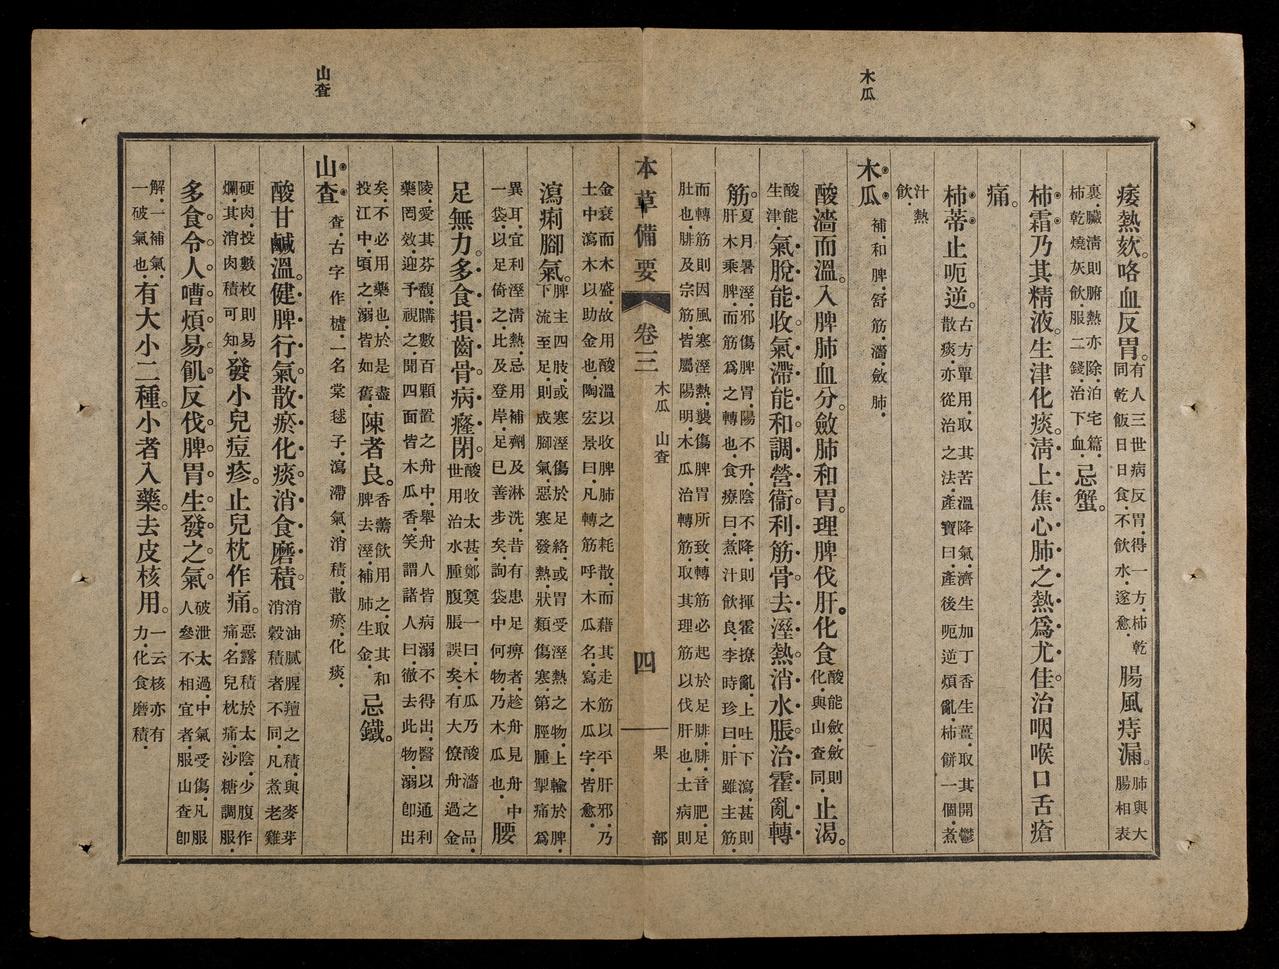 木瓜
痿熱欬咯血反胃。有人三世病反胃.得一方.柿乾同乾飯日日食.不飲水.遂愈.腸風痔漏。肺與大腸相表
裏.臟淸則腑熱亦除.泊宅篇.柿乾燒灰飲服二錢.治下血.忌蟹。
柿霜乃其精液。生津化痰。淸上焦心肺之熱爲尤佳。治咽喉口舌瘡
痛。
柿蒂止呃逆。古方單用.取其苦溫降氣.濟生加丁香生薑.取其開鬱散痰.亦從治之法.產寶曰.產後呃逆煩亂.柿餅一個.煮
汁熱飲.
木瓜 補.和脾.舒筋.濇.斂肺.
酸濇而溫。入脾肺血分。斂肺和胃。理脾伐肝。化食酸能斂.斂則化.與山查同.止渴。
酸能生津.氣脫能收。氣滯能和。調營衞。利筋骨。去溼熱。消水脹。治霍亂轉
筋。夏月暑溼.邪傷脾胃.陽不升.陰不降.則揮霍撩亂.上吐下瀉.甚則肝木乘脾.而筋爲之轉也.食療曰.煮汁飲良.李時珍曰.肝雖主筋.
而轉筋則因風寒溼熱.襲傷脾胃所致.轉筋必起於足腓.腓音肥.足肚也.腓及宗筋.皆屬陽明.木瓜治轉筋.取其理筋以伐肝也.土病則
本草備要 卷三 木瓜 山查 四 果部
金衰而木盛.故用酸溫以收脾肺之耗散.而藉其走筋以平肝邪.乃土中瀉木以助金也.陶宏景曰.凡轉筋呼木瓜名.寫木瓜字.皆愈.
瀉痢腳氣。脾主四肢.或寒溼傷於足絡.或胃受溼熱之物.上輸於脾.下流至足.則成腳氣.惡寒發熱.狀類傷寒.第脛腫掣痛爲
異耳.宜利溼淸熱.忌用補劑及淋洗.昔有患足痹者.趁舟見舟中一袋.以足倚之.比及登岸.足已善步矣.詢袋中何物.乃木瓜也.腰
足無力。多食損齒骨病癃閉。酸收太甚.鄭奠一曰.木瓜乃酸濇之品.世用治水腫腹脹.誤矣.有大僚舟過金
陵.愛其芬馥.購數百顆置之舟中.舉舟人皆病溺不得出.醫以通利藥罔效.迎予視之.聞四面皆木瓜香.笑謂諸人曰.徹去此物.溺卽出
矣.不必用藥也.於是盡投江中.頃之.溺皆如舊.陳者良。香薷飲用之.取其和脾去溼.補肺生金.忌鐵。
山查
山查 查.古字作樝.一名棠毬子.瀉滯氣.消積.散瘀.化痰.
酸甘鹹溫。健脾行氣。散瘀化痰。消食磨積。消油膩腥羶之積.與麥芽消穀積者不同.凡煮老雞
硬肉.投數枚則易爛.其消肉積可知.發小兒痘疹。止兒枕作痛。惡露積於太陰.少腹作痛.名兒枕痛.沙糖調服.
多食令人嘈煩易飢。反伐脾胃生發之氣。破泄太過.中氣受傷.凡服人參不相宜者.服山查卽
解.一補氣.一破氣也.有大小二種。小者入藥。去皮核用。一云核亦有力.化食磨積.